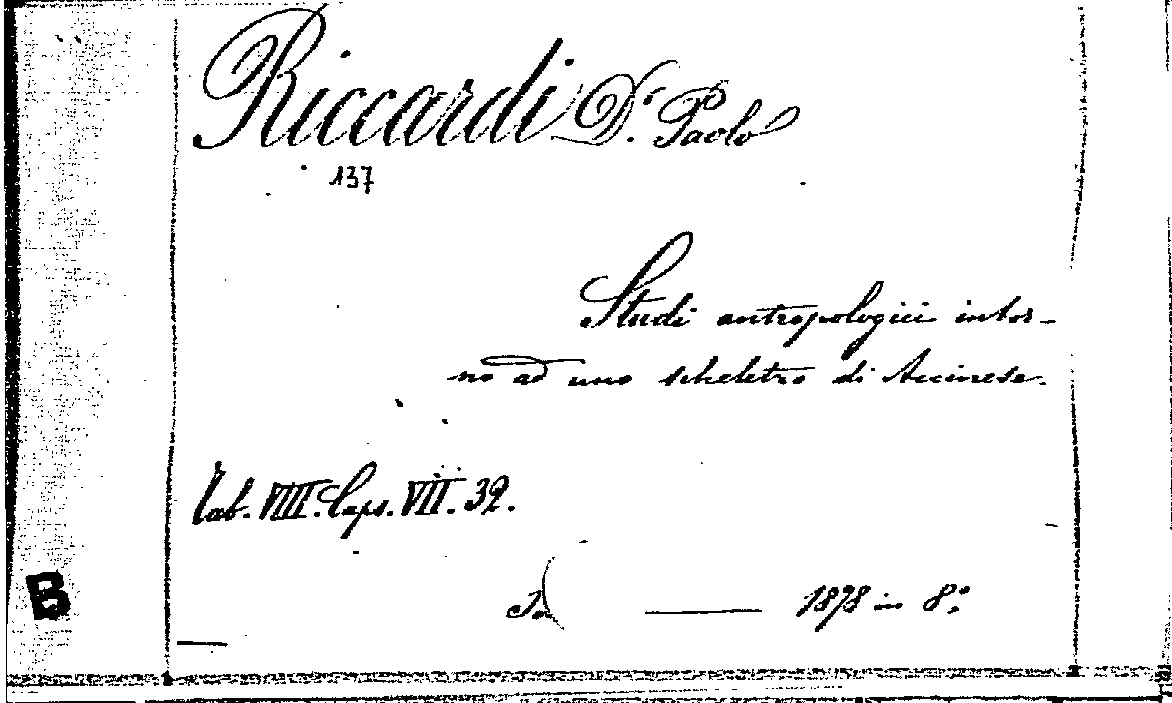 Riccardi Dr. Paolo
137
Studi antropologici intor-
no ad uno scheletro di Accinese.
Tab. VIIII. Caps. VII. 32.
In ——— 1878 in 8.°
B